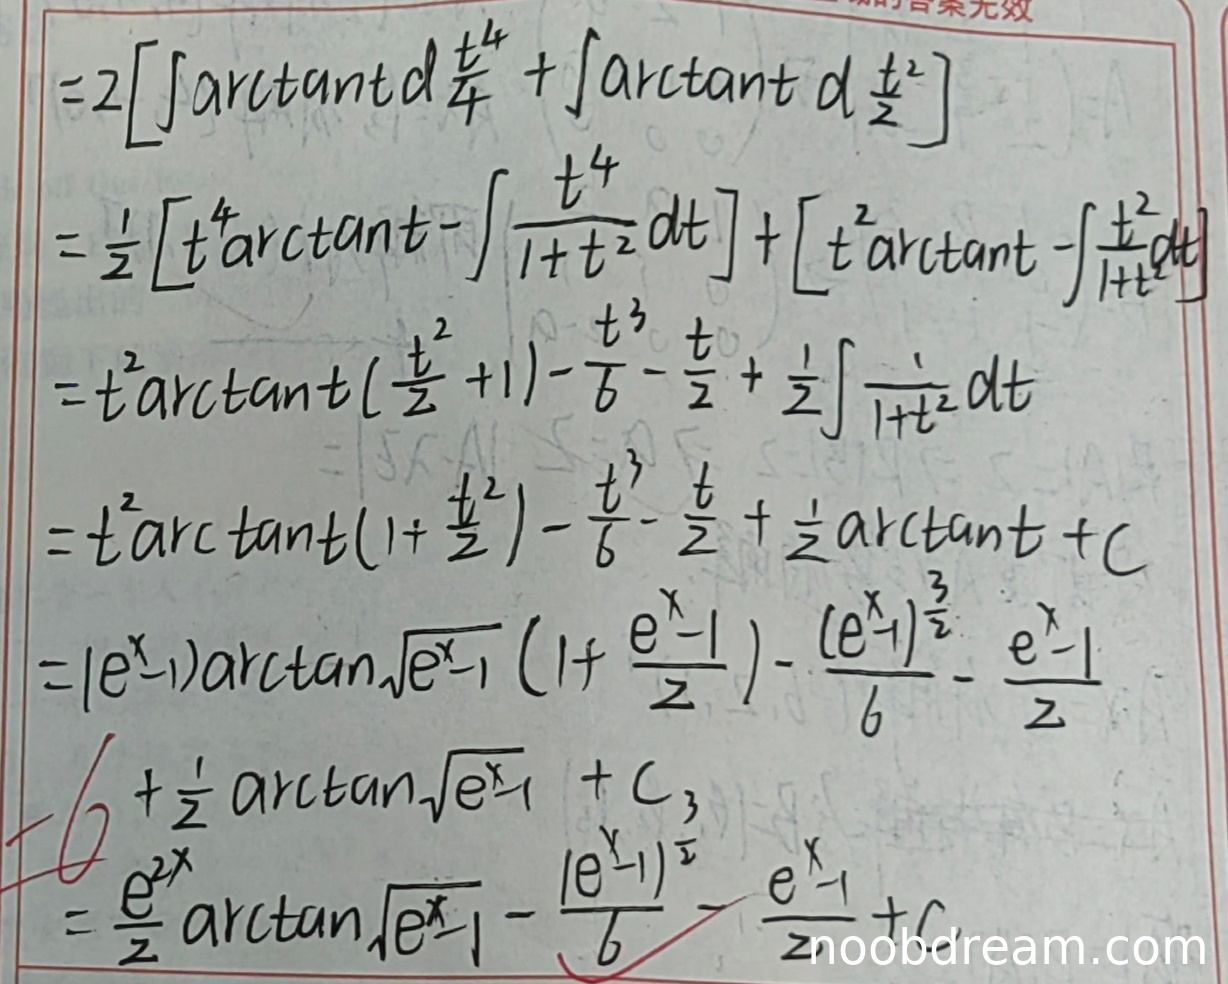 的答案无效
=2[∫arctant d t⁴/4 + ∫arctant d t²/2]
=1/2[t⁴arctant-∫t⁴/(1+t²)dt]+[t²arctant-∫t²/(1+t²)dt]
=t²arctant(t²/2+1)-t³/6-t/2+1/2∫1/(1+t²)dt
=t²arctant(1+t²/2)-t³/6-t/2+1/2arctant+C
=(eˣ-1)arctan√(eˣ-1)(1+(eˣ-1)/2)-(eˣ-1)^(3/2)/6-(eˣ-1)/2
+1/2arctan√(eˣ-1)+C
-6
=e²ˣ/2 arctan√(eˣ-1)-(eˣ-1)^(3/2)/6-(eˣ-1)/2+C
noobdream.com